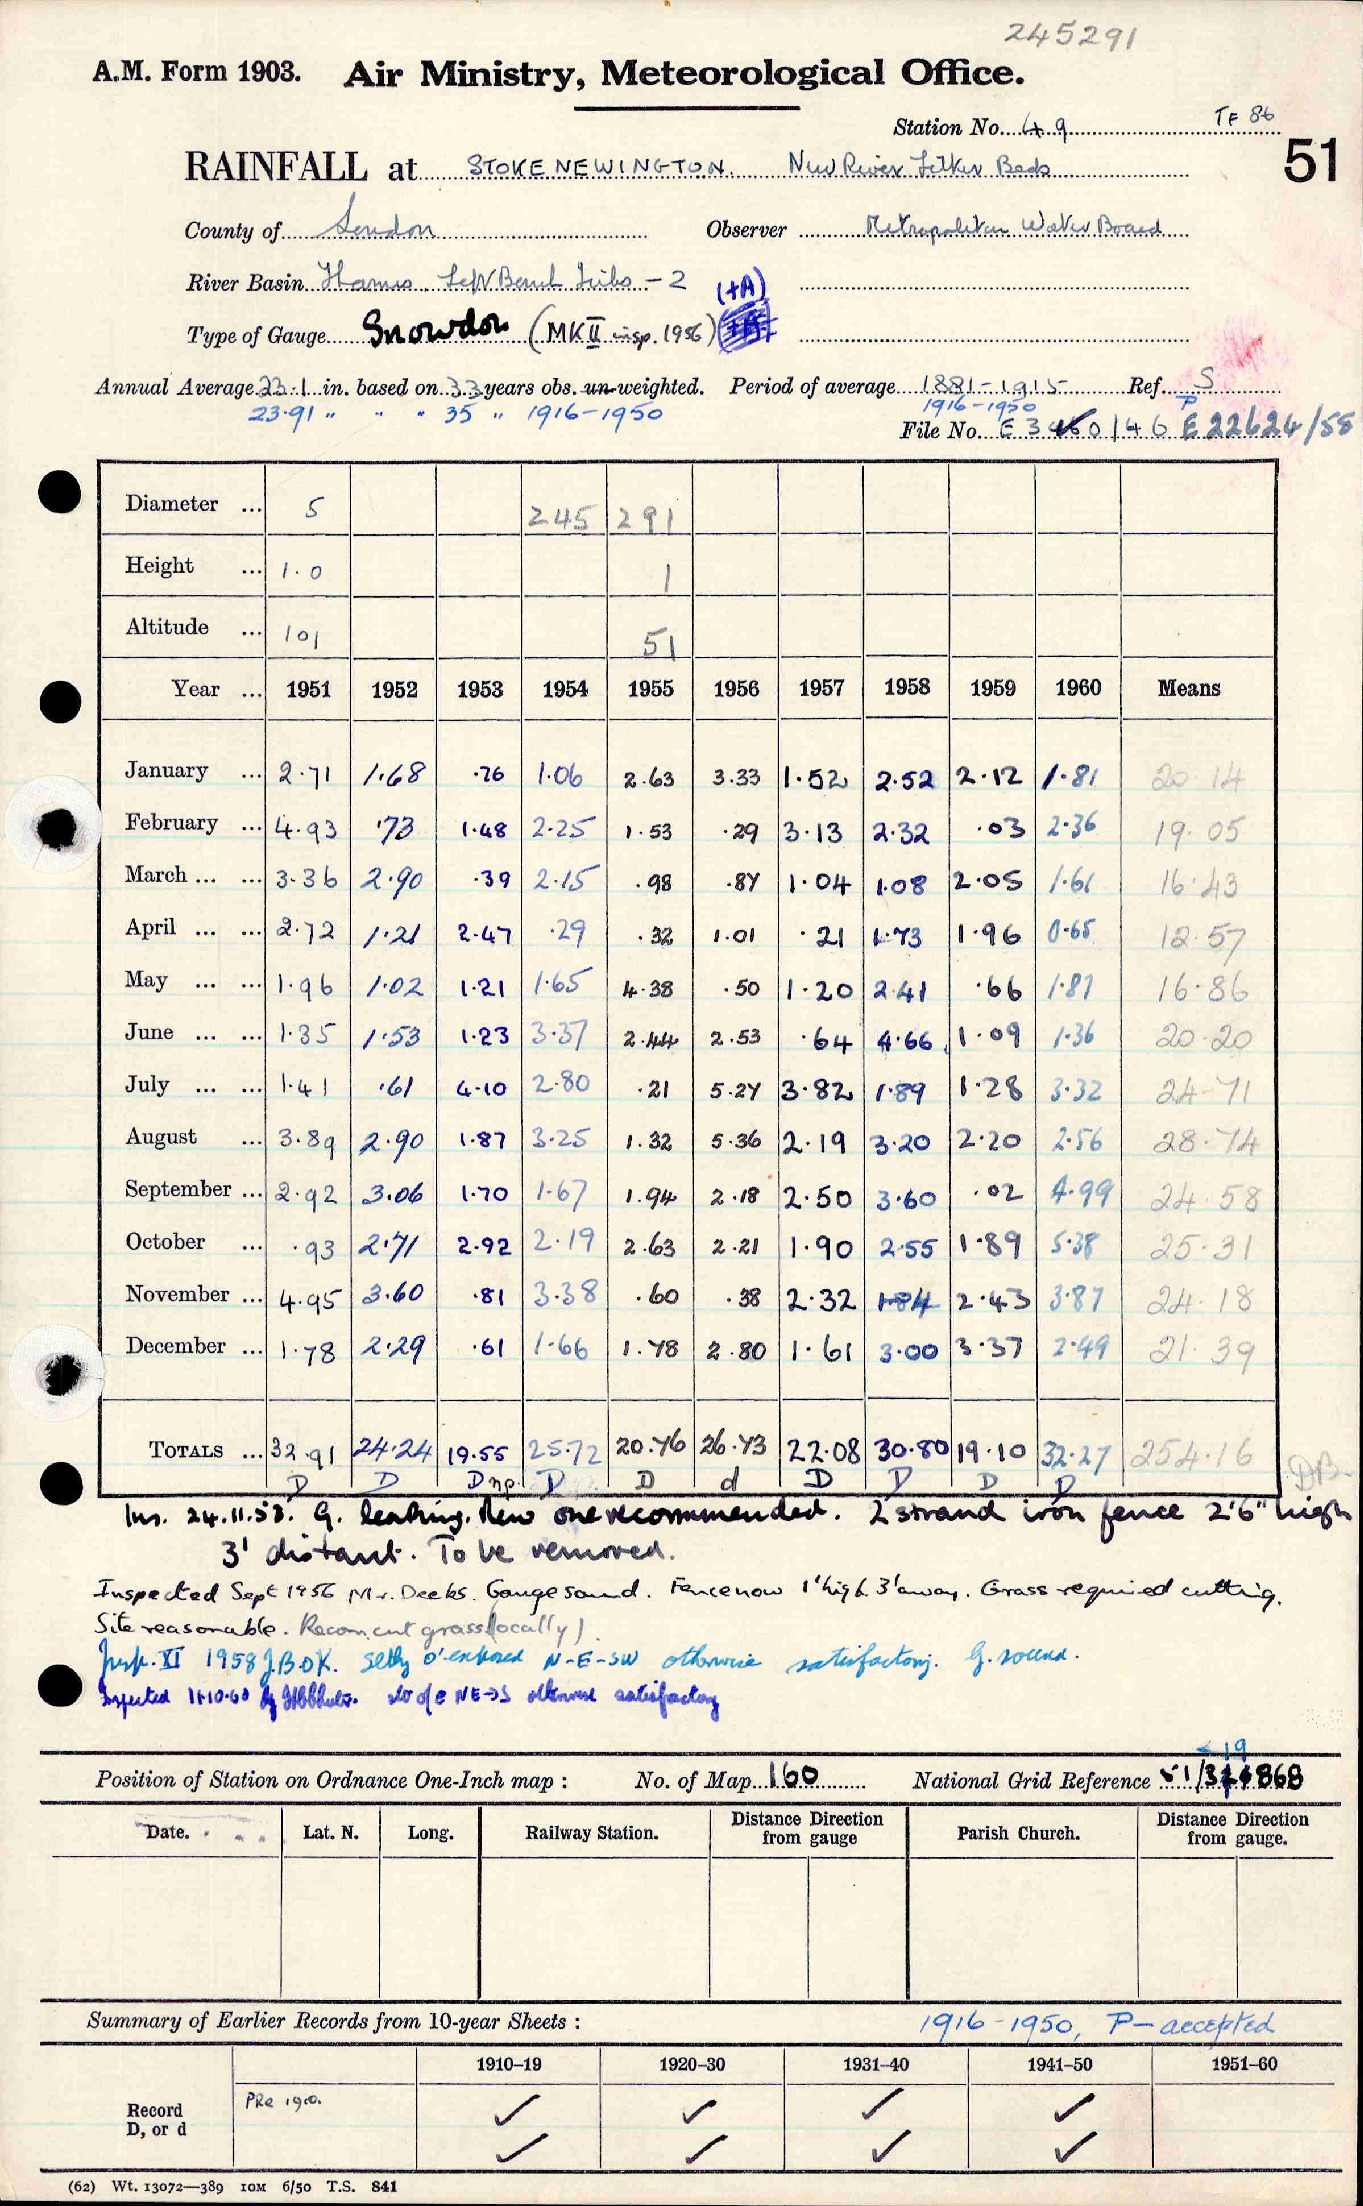 245291
A.M. Form 1903. Air Ministry, Meteorological Office.
Station No. 49 TF 86
51
RAINFALL at STOKE NEWINGTON. New River Filter Beds
County of London Observer Metropolitan Water Board
River Basin Thames. Left Bank Tribs - 2
(+A)
Type of Gauge Snowdon (MK II insp. 1956)
Annual Average 23.1 in. based on 33 years obs. un-weighted. Period of average 1881-1915 Ref. S
23.91 " " " 35 " 1916-1950 1916-1950 P
File No. E 3460/46 E 22624/58
Diameter ... 5 245 291
Height ... 1.0 1
Altitude ... 101 51
Year ... 1951 1952 1953 1954 1955 1956 1957 1958 1959 1960 Means
January ... 2.71 1.68 .76 1.06 2.63 3.33 1.52 2.52 2.12 1.81 20.14
February ... 4.93 .73 1.48 2.25 1.53 .29 3.13 2.32 .03 2.36 19.05
March ... ... 3.36 2.90 .39 2.15 .98 .87 1.04 1.08 2.05 1.61 16.43
April ... ... 2.72 1.21 2.47 .29 .32 1.01 .21 1.73 1.96 0.65 12.57
May ... ... 1.96 1.02 1.21 1.65 4.38 .50 1.20 2.41 .66 1.87 16.86
June ... ... 1.35 1.53 1.23 3.37 2.44 2.53 .64 4.66 1.09 1.36 20.20
July ... ... 1.41 .61 4.10 2.80 .21 5.27 3.82 1.89 1.28 3.32 24.71
August ... 3.89 2.90 1.87 3.25 1.32 5.36 2.19 3.20 2.20 2.56 28.74
September ... 2.92 3.06 1.70 1.67 1.94 2.18 2.50 3.60 .02 4.99 24.58
October ... .93 2.71 2.92 2.19 2.63 2.21 1.90 2.55 1.89 5.38 25.31
November ... 4.95 3.60 .81 3.38 .60 .38 2.32 1.84 2.43 3.87 24.18
December ... 1.78 2.29 .61 1.66 1.78 2.80 1.61 3.00 3.37 2.49 21.39
TOTALS ... 32.91 24.24 19.55 25.72 20.76 26.73 22.08 30.80 19.10 32.27 254.16
D D D np. D D d D D D D DB.
Ins. 24.11.53. G. leaking. New one recommended. 2 strand iron fence 2'6" high
3' distant. To be removed.
Inspected Sept 1956 Mr. Deeks. Gauge sound. Fence now 1' high 3' away. Grass required cutting.
Site reasonable. Recom. cut grass (locally)
Insp. XI 1958 J.B.O'K. Stly o'exposed N-E-SW otherwise satisfactory. G. sound.
Inspected 11.10.60 by slt o/e NE→S otherwise satisfactory
19
Position of Station on Ordnance One-Inch map : No. of Map 160 National Grid Reference 51/324868
Date. Lat. N. Long. Railway Station. Distance Direction from gauge Parish Church. Distance Direction from gauge.
Summary of Earlier Records from 10-year Sheets : 1916-1950, P-accepted
1910–19 1920–30 1931–40 1941–50 1951–60
Record D, or d PRe 1910. ✓ ✓ ✓ ✓
✓ ✓ ✓ ✓
(62) Wt. 13072—389 10M 6/50 T.S. 841